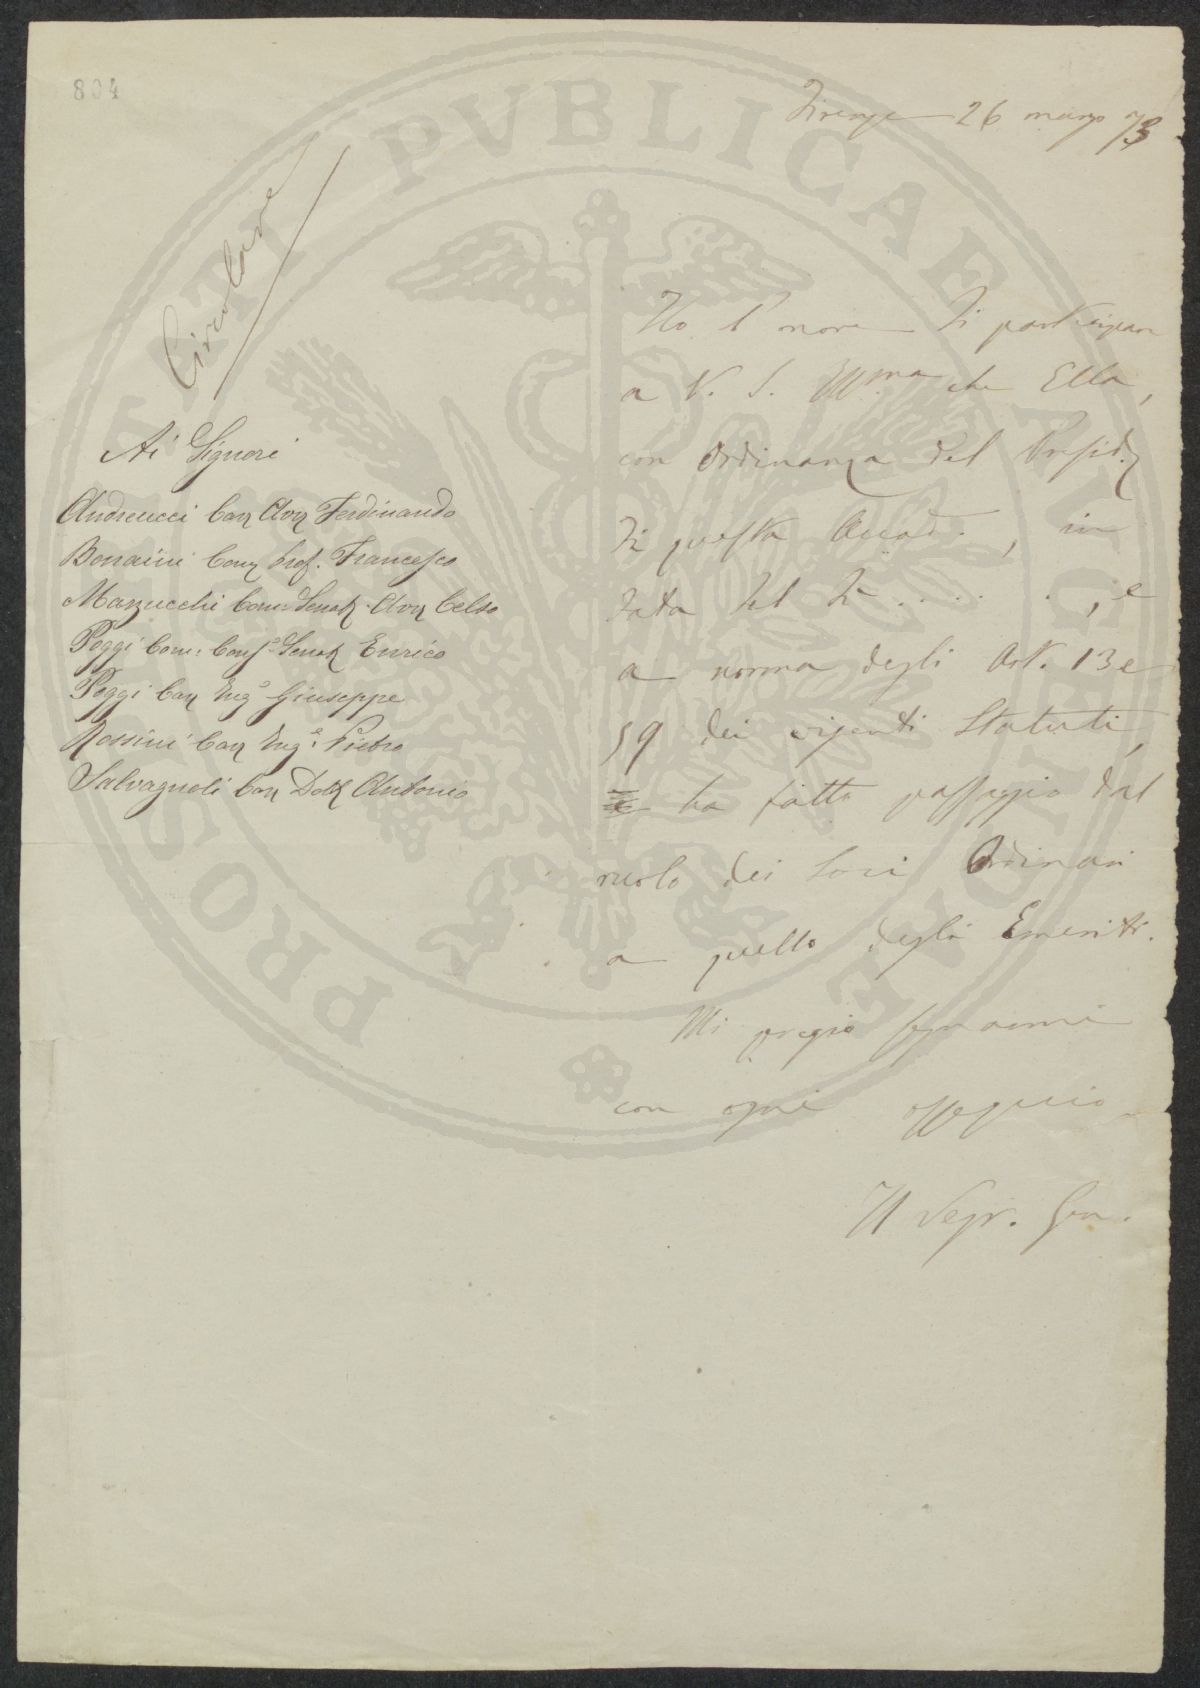 804
Firenze 26 marzo 73
Circolare
Ai Signori
Andreucci Cav Avv Ferdinando
Bonaini Com Prof. Francesco
Marzucchi Com: Senat Avv Celso
Poggi Com: Cons.e Senat Enrico
Poggi Cav Ing.e Giuseppe
Rossini Cav Ing.e Pietro
Salvagnoli Cav Dott Antonio
Ho l'onore di partecipare
a V. S. Ill.ma che Ella,
con Ordinanza del Presid.
di questa Accad. , in
data del dì . . . . . , e
a norma degli Art. 13 e
59 dei vigenti Statuti,
ha fatto passaggio dal
ruolo dei Soci Ordinari
a quello degli Emeriti.
Mi pregio segnarmi
con ogni ossequio
Il Segr. Gen.
PROSPERITATI PVBLICAE AVGENDAE